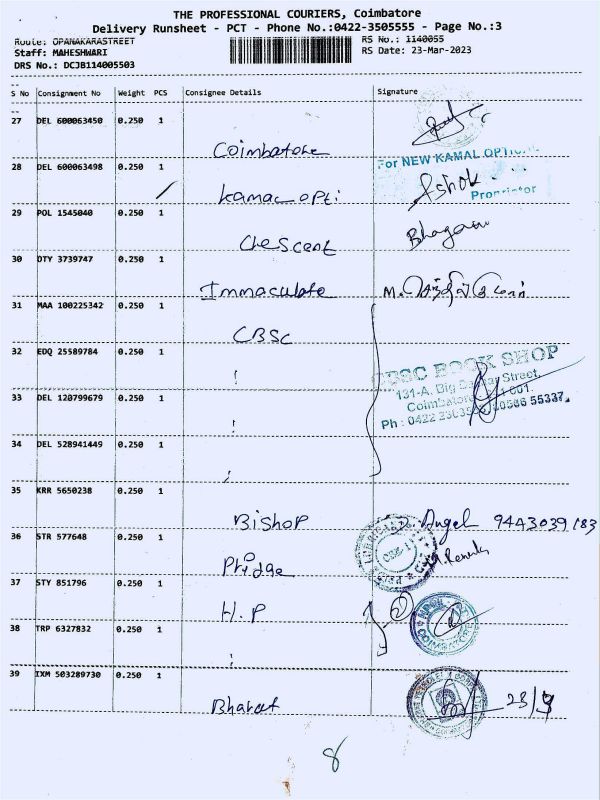 THE PROFESSIONAL COURIERS, Coimbatore
Delivery Runsheet - PCT - Phone No.:0422-3505555 - Page No.:3
Route: OPANAKARASTREET
RS No.: 1140055
Staff: MAHESHWARI
RS Date: 23-Mar-2023
DRS No.: DCJB114005503
S No Consignment No Weight PCS Consignee Details Signature
27 DEL 600063450 0.250 1
Coimbatore
28 DEL 600063498 0.250 1
For NEW KAMAL
Kamal opti Ashok
Proprietor
29 POL 1545040 0.250 1
Crescent
30 DTY 3739747 0.250 1
Immaculate
31 MAA 100225342 0.250 1
CBSC
32 EDQ 25589784 0.250 1
CBSC BOOK SHOP
131-A, Big Street,
33 DEL 120799679 0.250 1
Coimbatore
Ph : 0422 55337
34 DEL 528941449 0.250 1
35 KRR 5650238 0.250 1
Bishop Angel
36 STR 577648 0.250 1
Pridge
37 STY 851796 0.250 1
H.P
38 TRP 6327832 0.250 1
39 IXM 503289730 0.250 1
Bharat
8